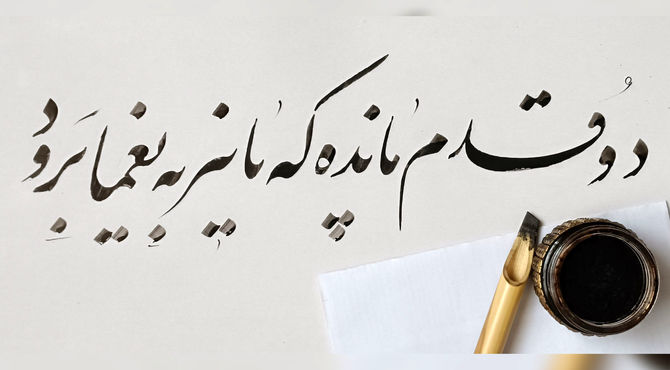 دو قدم مانده که پاییز به یغما برود